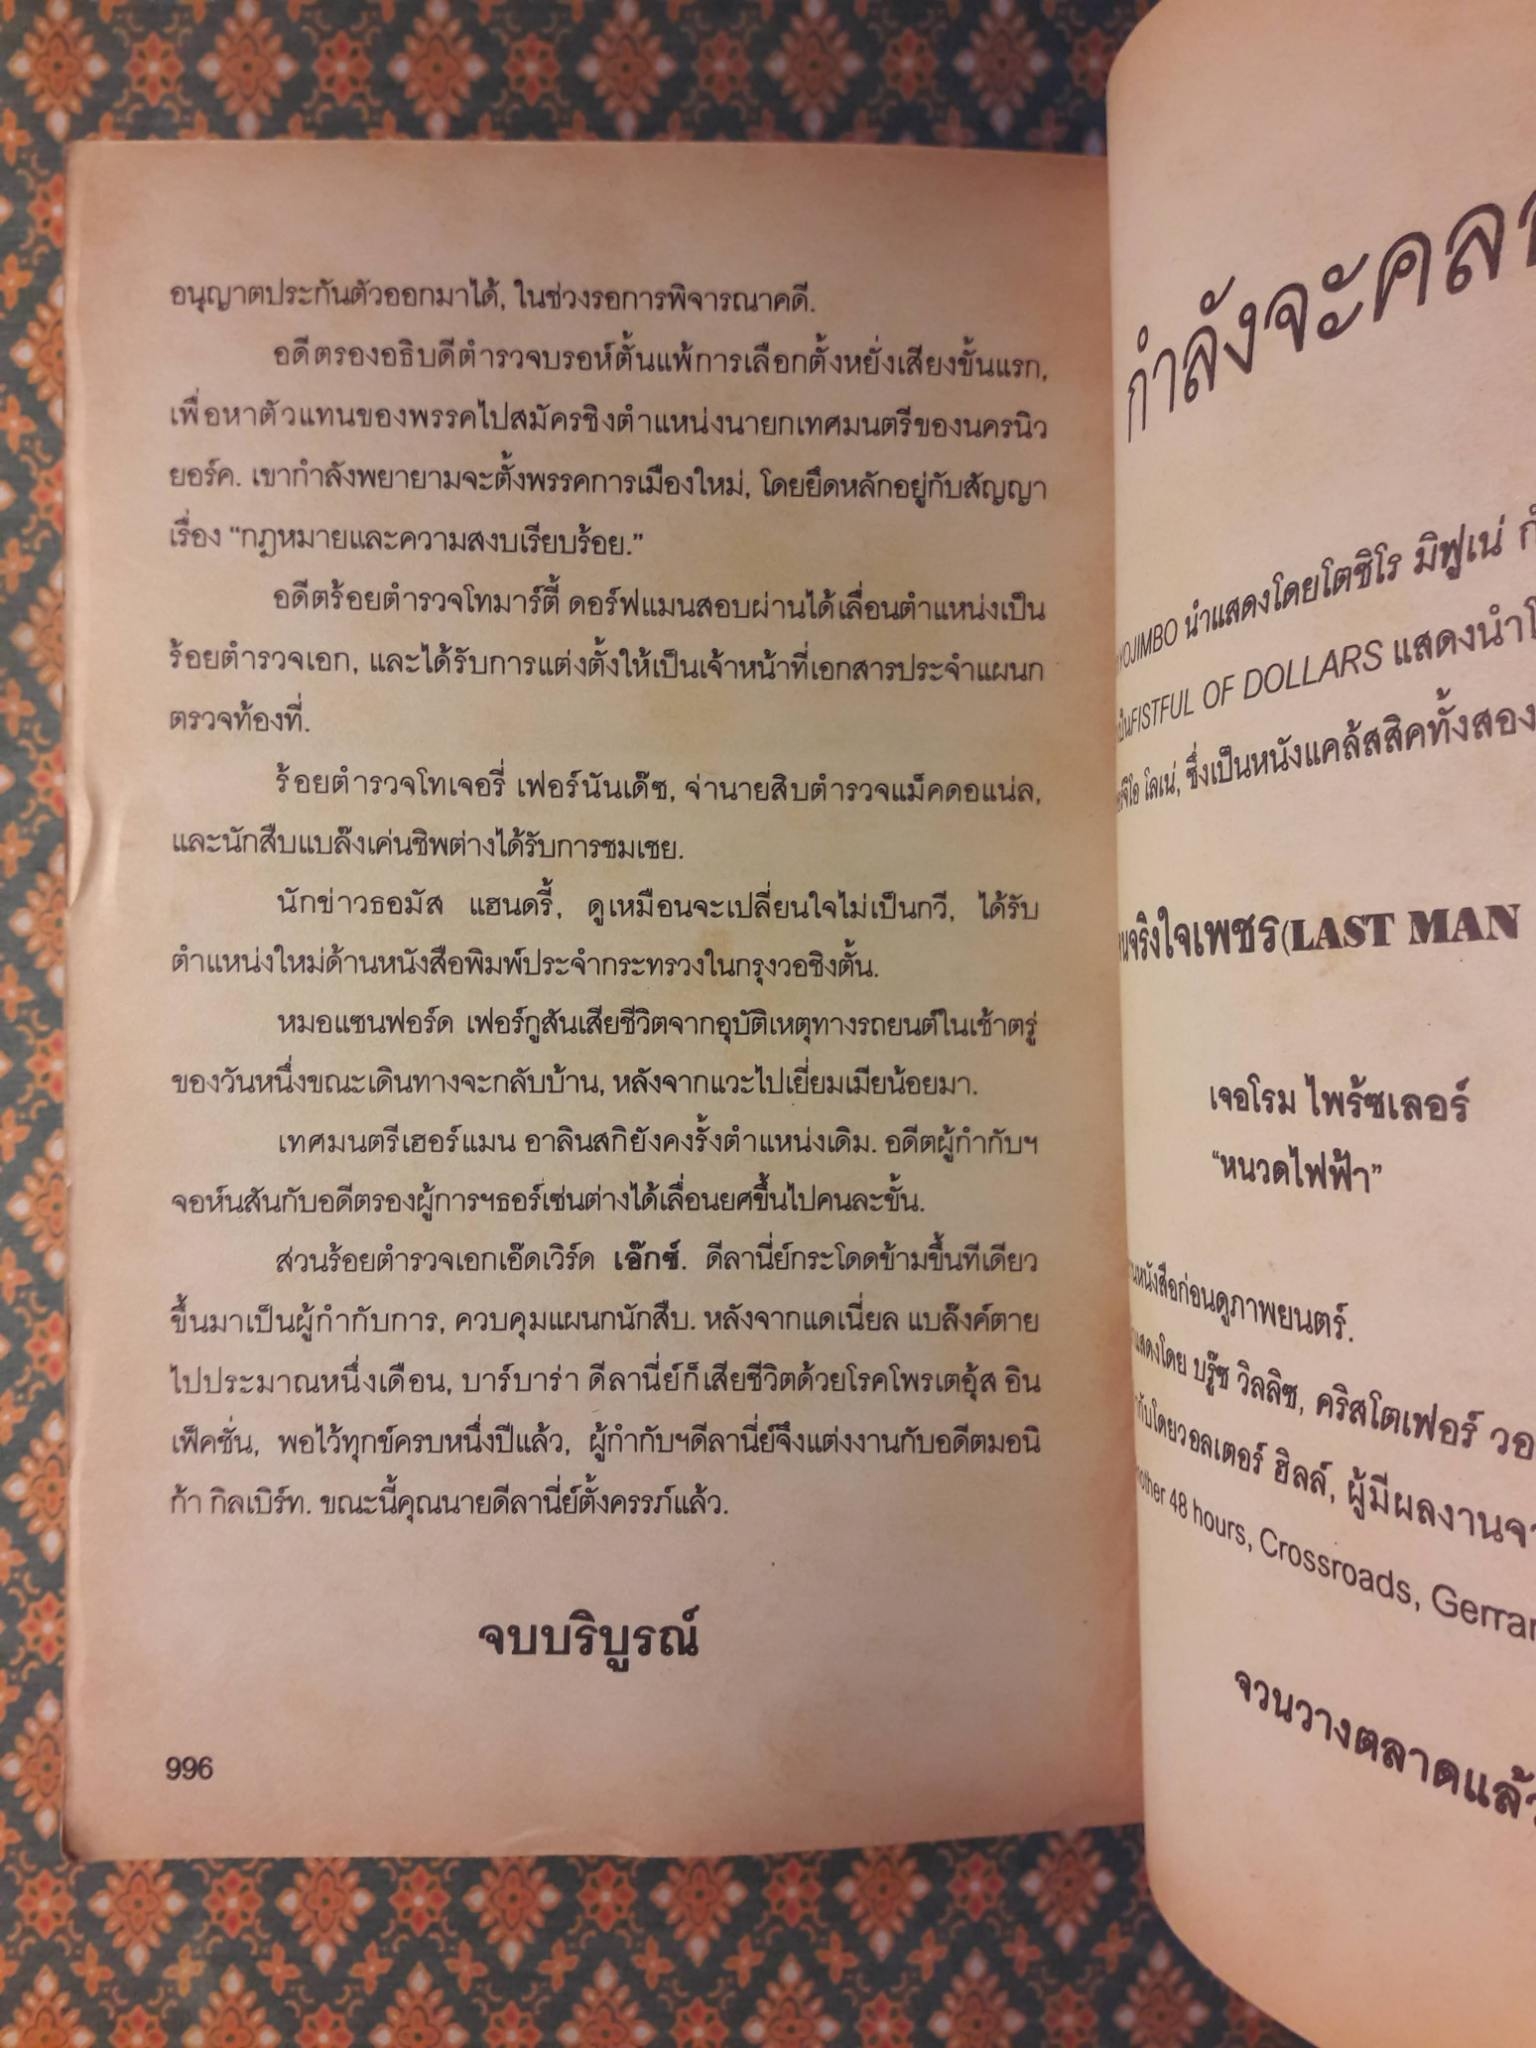 อนุญาตประกันตัวออกมาได้, ในช่วงรอการพิจารณาคดี.
อดีตรองอธิบดีตำรวจบรอห์ตั้นแพ้การเลือกตั้งหยั่งเสียงขั้นแรก,
เพื่อหาตัวแทนของพรรคไปสมัครชิงตำแหน่งนายกเทศมนตรีของนครนิว
ยอร์ค. เขากำลังพยายามจะตั้งพรรคการเมืองใหม่, โดยยึดหลักอยู่กับสัญญา
เรื่อง “กฎหมายและความสงบเรียบร้อย.”
อดีตร้อยตำรวจโทมาร์ตี้ ดอร์ฟแมนสอบผ่านได้เลื่อนตำแหน่งเป็น
ร้อยตำรวจเอก, และได้รับการแต่งตั้งให้เป็นเจ้าหน้าที่เอกสารประจำแผนก
ตรวจท้องที่.
ร้อยตำรวจโทเจอรี่ เฟอร์นันเด๊ซ, จ่านายสิบตำรวจแม็คดอแน่ล,
และนักสืบแบล๊งเค่นชิพต่างได้รับการชมเชย.
นักข่าวธอมัส แฮนดรี้, ดูเหมือนจะเปลี่ยนใจไม่เป็นกวี, ได้รับ
ตำแหน่งใหม่ด้านหนังสือพิมพ์ประจำกระทรวงในกรุงวอชิงตั้น.
หมอแซนฟอร์ด เฟอร์กูสันเสียชีวิตจากอุบัติเหตุทางรถยนต์ในเช้าตรู่
ของวันหนึ่งขณะเดินทางจะกลับบ้าน, หลังจากแวะไปเยี่ยมเมียน้อยมา.
เทศมนตรีเฮอร์แมน อาลินสกิยังคงรั้งตำแหน่งเดิม. อดีตผู้กำกับฯ
จอห์นสันกับอดีตรองผู้การฯธอร์เซ่นต่างได้เลื่อนยศขึ้นไปคนละขั้น.
ส่วนร้อยตำรวจเอกเอ๊ดเวิร์ด เอ๊กซ์. ดีลานี่ย์กระโดดข้ามขึ้นทีเดียว
ขึ้นมาเป็นผู้กำกับการ, ควบคุมแผนกนักสืบ. หลังจากแดเนี่ยล แบล๊งค์ตาย
ไปประมาณหนึ่งเดือน, บาร์บาร่า ดีลานี่ย์ก็เสียชีวิตด้วยโรคโพรเตอุ้ส อิน
เฟ็คชั่น, พอไว้ทุกข์ครบหนึ่งปีแล้ว, ผู้กำกับฯดีลานี่ย์จึงแต่งงานกับอดีตมอนิ
ก้า กิลเบิร์ท. ขณะนี้คุณนายดีลานี่ย์ตั้งครรภ์แล้ว.
จบบริบูรณ์
996
กำลังจะ
YOJIMBO นำแสดงโดยโตชิโร มิฟูเน่
FISTFUL OF DOLLARS แสดงนำ
โลเน่, ซึ่งเป็นหนังแคล้สสิคทั้งสอง
จริงใจเพชร(LAST MAN
เจอโรม ไพร้ซเลอร์
“หนวดไฟฟ้า”
หนังสือก่อนดูภาพยนตร์.
แสดงโดย บรู๊ซ วิลลิซ, คริสโตเฟอร์
โดยวอลเตอร์ ฮิลล์, ผู้มีผลงาน
48 hours, Crossroads,
จวนวางตลาดแล้ว